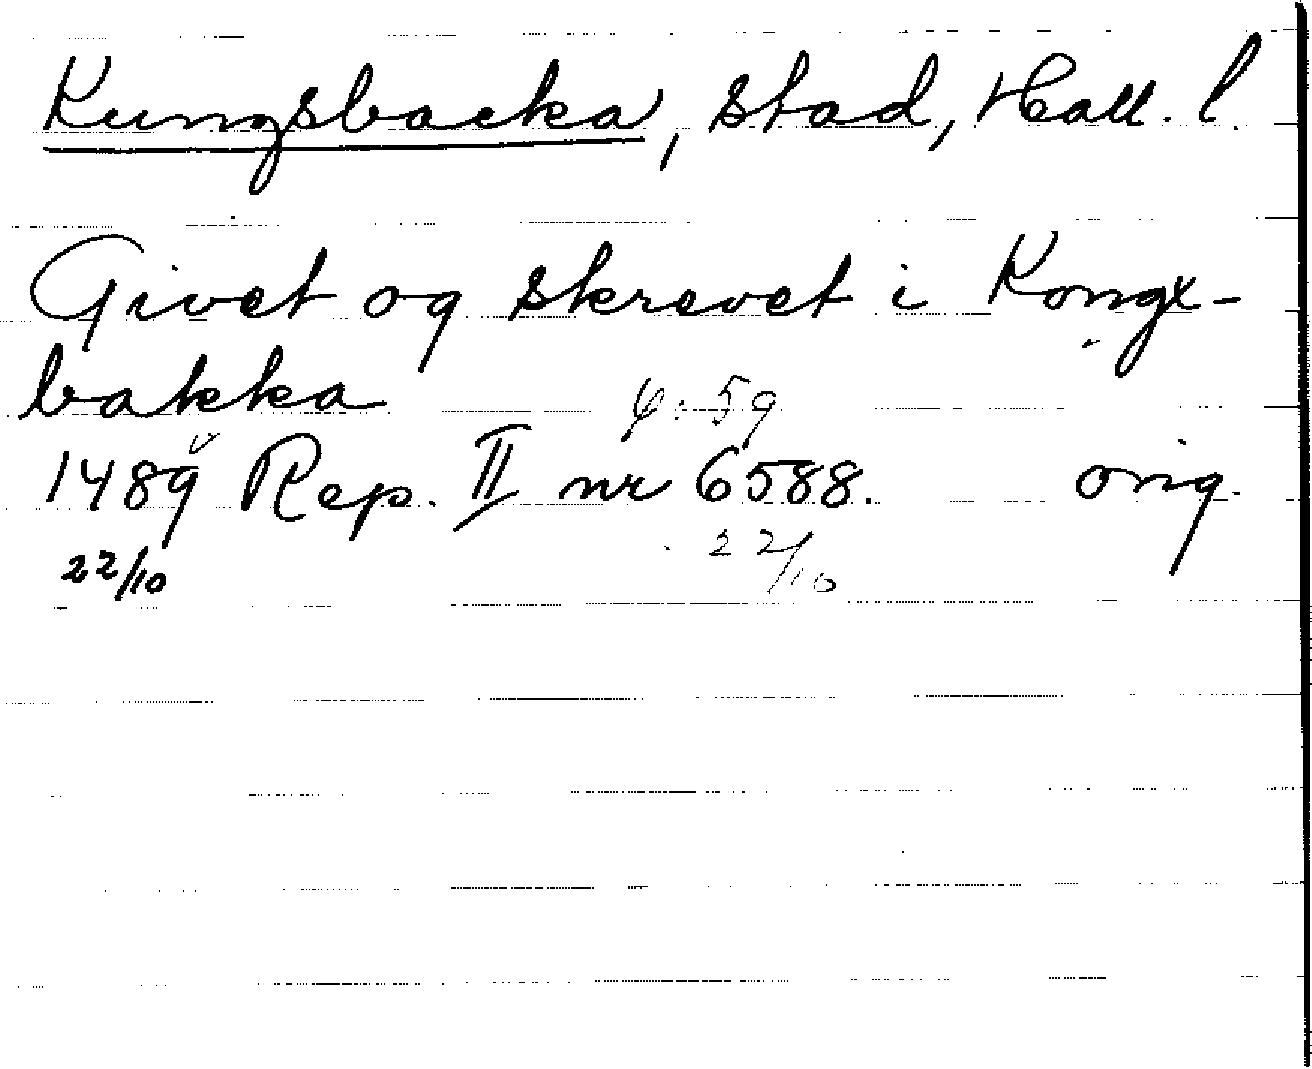 Kungsbacka, stad, Hall. l.
Givet og skrevet i Kongx-
bakka
59
1489 Rep. II nr 6588. orig.
22/10 22/10